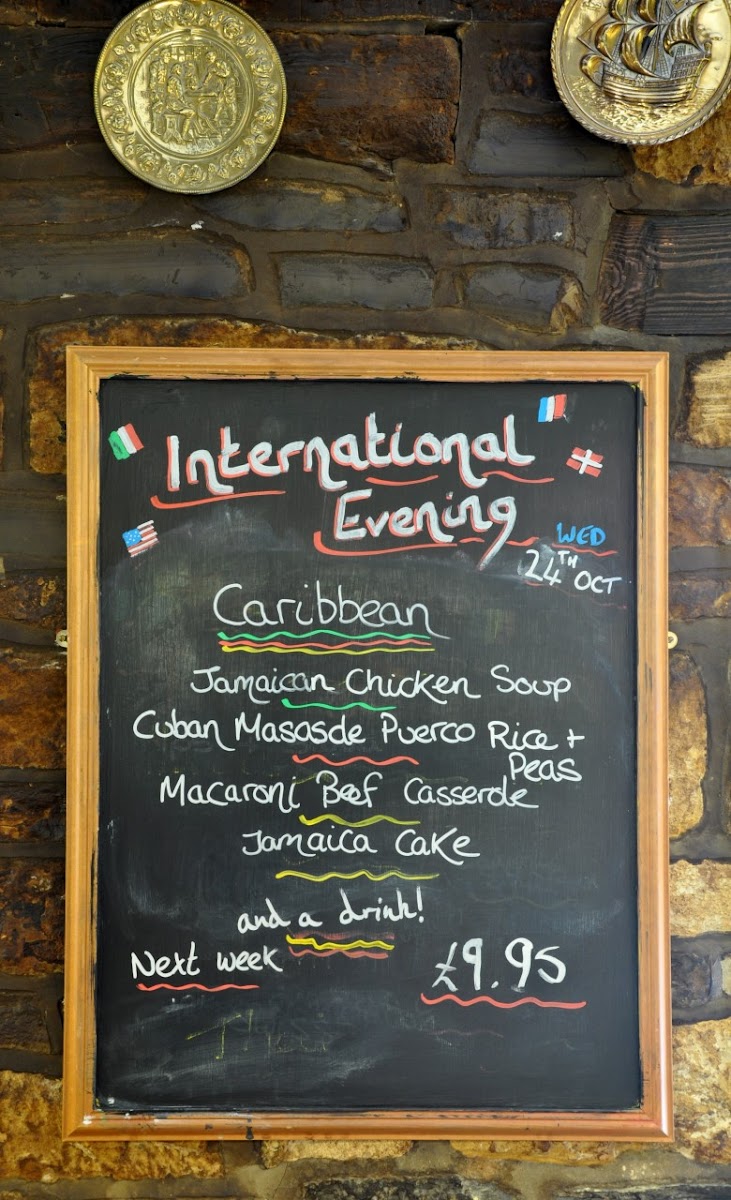 International
Evening
WED
24TH OCT
Caribbean
Jamaican Chicken Soup
Cuban Masasde Puerco Rice +
Peas
Macaroni Beef Casserole
Jamaica Cake
and a drink!
Next week
£9.95